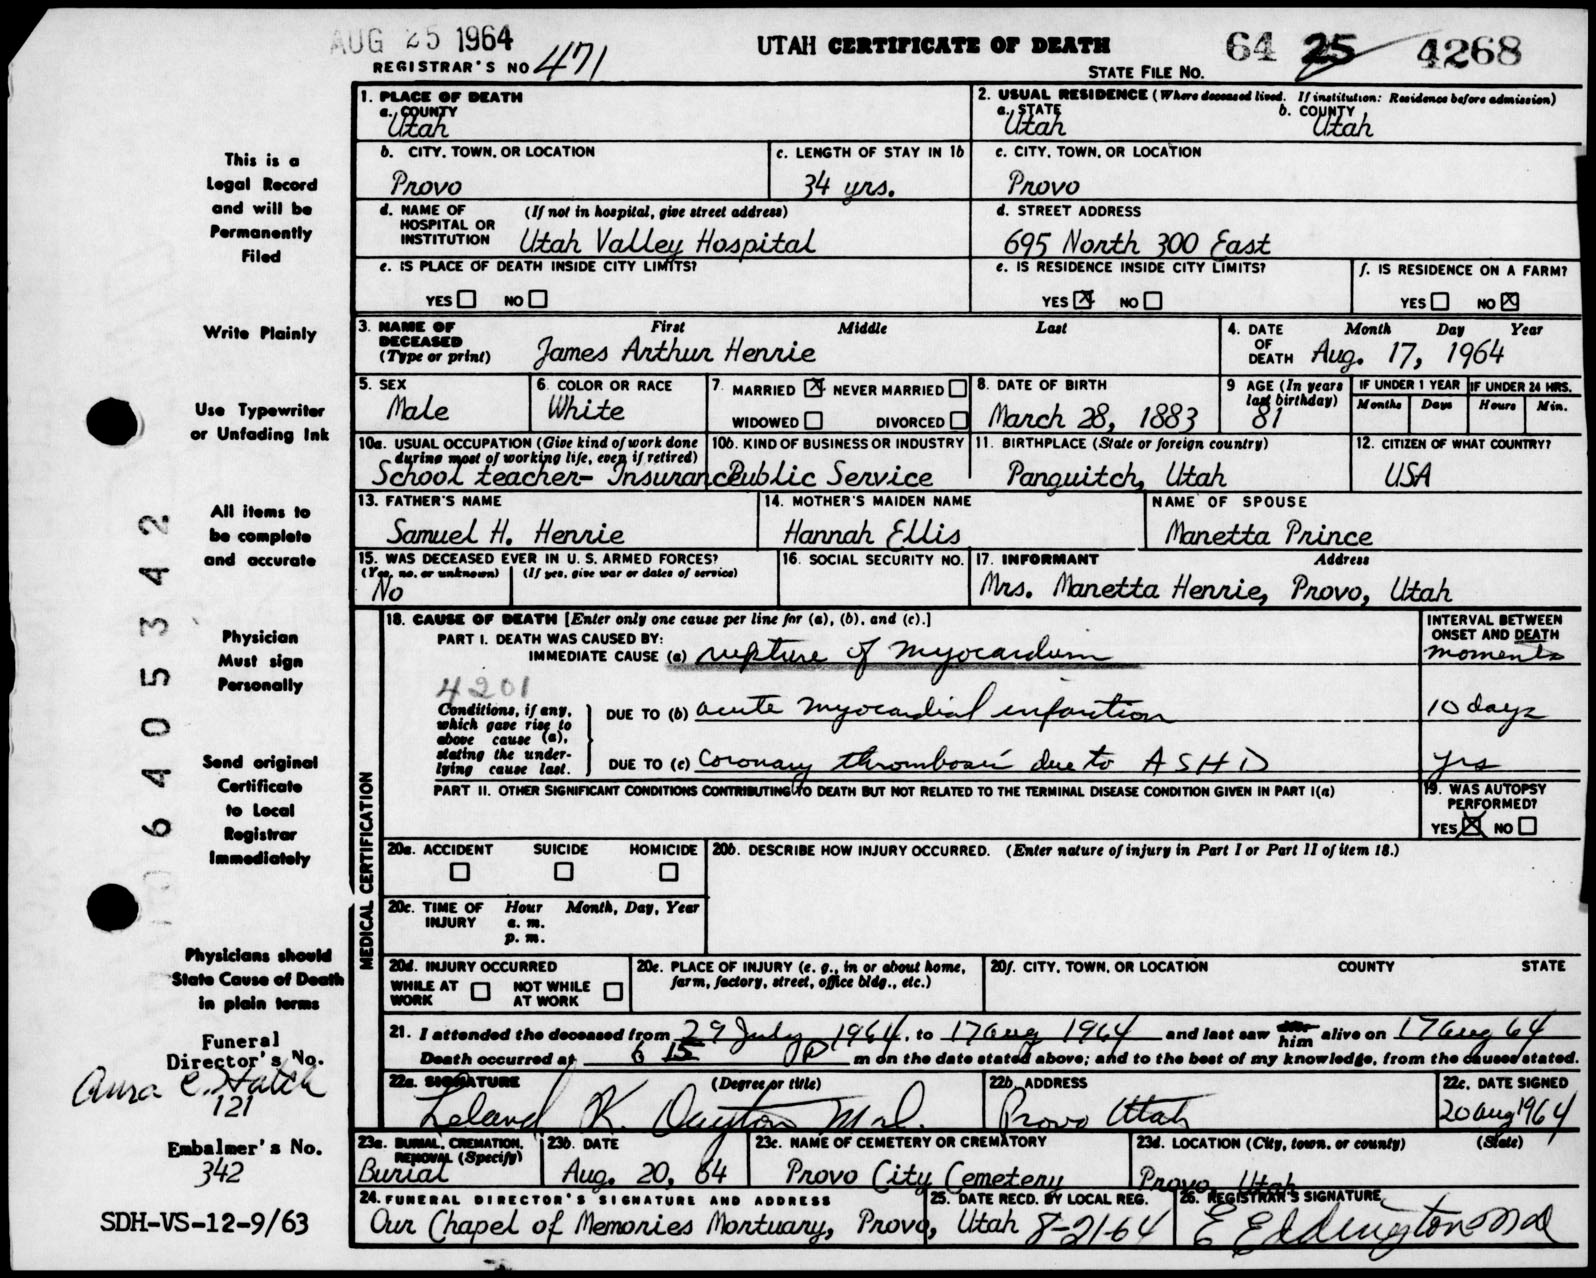 AUG 25 1964
UTAH CERTIFICATE OF DEATH
64 25 4268
REGISTRAR'S NO 471
STATE FILE NO.
This is a
Legal Record
and will be
Permanently
Filed
Write Plainly
Use Typewriter
or Unfading Ink
All items to
be complete
and accurate
Physician
Must sign
Personally
Send original
Certificate
to Local
Registrar
Immediately
Physicians should
State Cause of Death
in plain terms
Funeral
Director's No.
C. Hatch
121
Embalmer's No.
342
SDH-VS-12-9/63
6405342
1. PLACE OF DEATH
a. COUNTY
Utah
2. USUAL RESIDENCE (Where deceased lived. If institution: Residence before admission)
a. STATE
Utah
b. COUNTY
Utah
b. CITY, TOWN, OR LOCATION
Provo
c. LENGTH OF STAY IN 1b
34 yrs.
c. CITY, TOWN, OR LOCATION
Provo
d. NAME OF HOSPITAL OR INSTITUTION
(If not in hospital, give street address)
Utah Valley Hospital
d. STREET ADDRESS
695 North 300 East
e. IS PLACE OF DEATH INSIDE CITY LIMITS?
YES NO
e. IS RESIDENCE INSIDE CITY LIMITS?
YES X NO
f. IS RESIDENCE ON A FARM?
YES NO X
3. NAME OF DECEASED (Type or print)
First Middle Last
James Arthur Henrie
4. DATE OF DEATH
Month Day Year
Aug. 17, 1964
5. SEX
Male
6. COLOR OR RACE
White
7. MARRIED X NEVER MARRIED
WIDOWED DIVORCED
8. DATE OF BIRTH
March 28, 1883
9 AGE (In years last birthday)
81
IF UNDER 1 YEAR
Months Days
IF UNDER 24 HRS.
Hours Min.
10a. USUAL OCCUPATION (Give kind of work done during most of working life, even if retired)
School teacher- Insurance
10b. KIND OF BUSINESS OR INDUSTRY
Public Service
11. BIRTHPLACE (State or foreign country)
Panguitch, Utah
12. CITIZEN OF WHAT COUNTRY?
USA
13. FATHER'S NAME
Samuel H. Henrie
14. MOTHER'S MAIDEN NAME
Hannah Ellis
NAME OF SPOUSE
Manetta Prince
15. WAS DECEASED EVER IN U.S. ARMED FORCES?
(Yes, no, or unknown) (If yes, give war or dates of service)
No
16. SOCIAL SECURITY NO.
17. INFORMANT Address
Mrs. Manetta Henrie, Provo, Utah
MEDICAL CERTIFICATION
18. CAUSE OF DEATH [Enter only one cause per line for (a), (b), and (c).]
INTERVAL BETWEEN ONSET AND DEATH
PART I. DEATH WAS CAUSED BY:
IMMEDIATE CAUSE (a) rupture of myocardium
moments
4201
Conditions, if any, which gave rise to above cause (a), stating the underlying cause last.
DUE TO (b) acute myocardial infarction
10 days
DUE TO (c) Coronary thrombosis due to ASHD
yrs
PART II. OTHER SIGNIFICANT CONDITIONS CONTRIBUTING TO DEATH BUT NOT RELATED TO THE TERMINAL DISEASE CONDITION GIVEN IN PART I(a)
19. WAS AUTOPSY PERFORMED?
YES X NO
20a. ACCIDENT SUICIDE HOMICIDE
20b. DESCRIBE HOW INJURY OCCURRED. (Enter nature of injury in Part I or Part II of item 18.)
20c. TIME OF INJURY
Hour Month, Day, Year
a. m.
p. m.
20d. INJURY OCCURRED
WHILE AT WORK NOT WHILE AT WORK
20e. PLACE OF INJURY (e. g., in or about home, farm, factory, street, office bldg., etc.)
20f. CITY, TOWN, OR LOCATION COUNTY STATE
21. I attended the deceased from 29 July 1964, to 17 aug 1964 and last saw him alive on 17 aug 64
Death occurred at 6 15 p m on the date stated above; and to the best of my knowledge, from the causes stated.
22a. SIGNATURE (Degree or title)
Leland K. Dayton M.D.
22b. ADDRESS
Provo Utah
22c. DATE SIGNED
20 aug 1964
23a. BURIAL, CREMATION, REMOVAL (Specify)
Burial
23b. DATE
Aug. 20, 64
23c. NAME OF CEMETERY OR CREMATORY
Provo City Cemetery
23d. LOCATION (City, town, or county) (State)
Provo, Utah
24. FUNERAL DIRECTOR'S SIGNATURE AND ADDRESS
Our Chapel of Memories Mortuary, Provo, Utah
25. DATE RECD. BY LOCAL REG.
8-21-64
26. REGISTRAR'S SIGNATURE
E Eddington MD